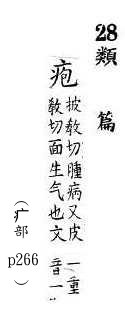 28
類篇
疱
披敎切腫病又皮
敎切面生气也文
一重
音一
(疒部
p266
)